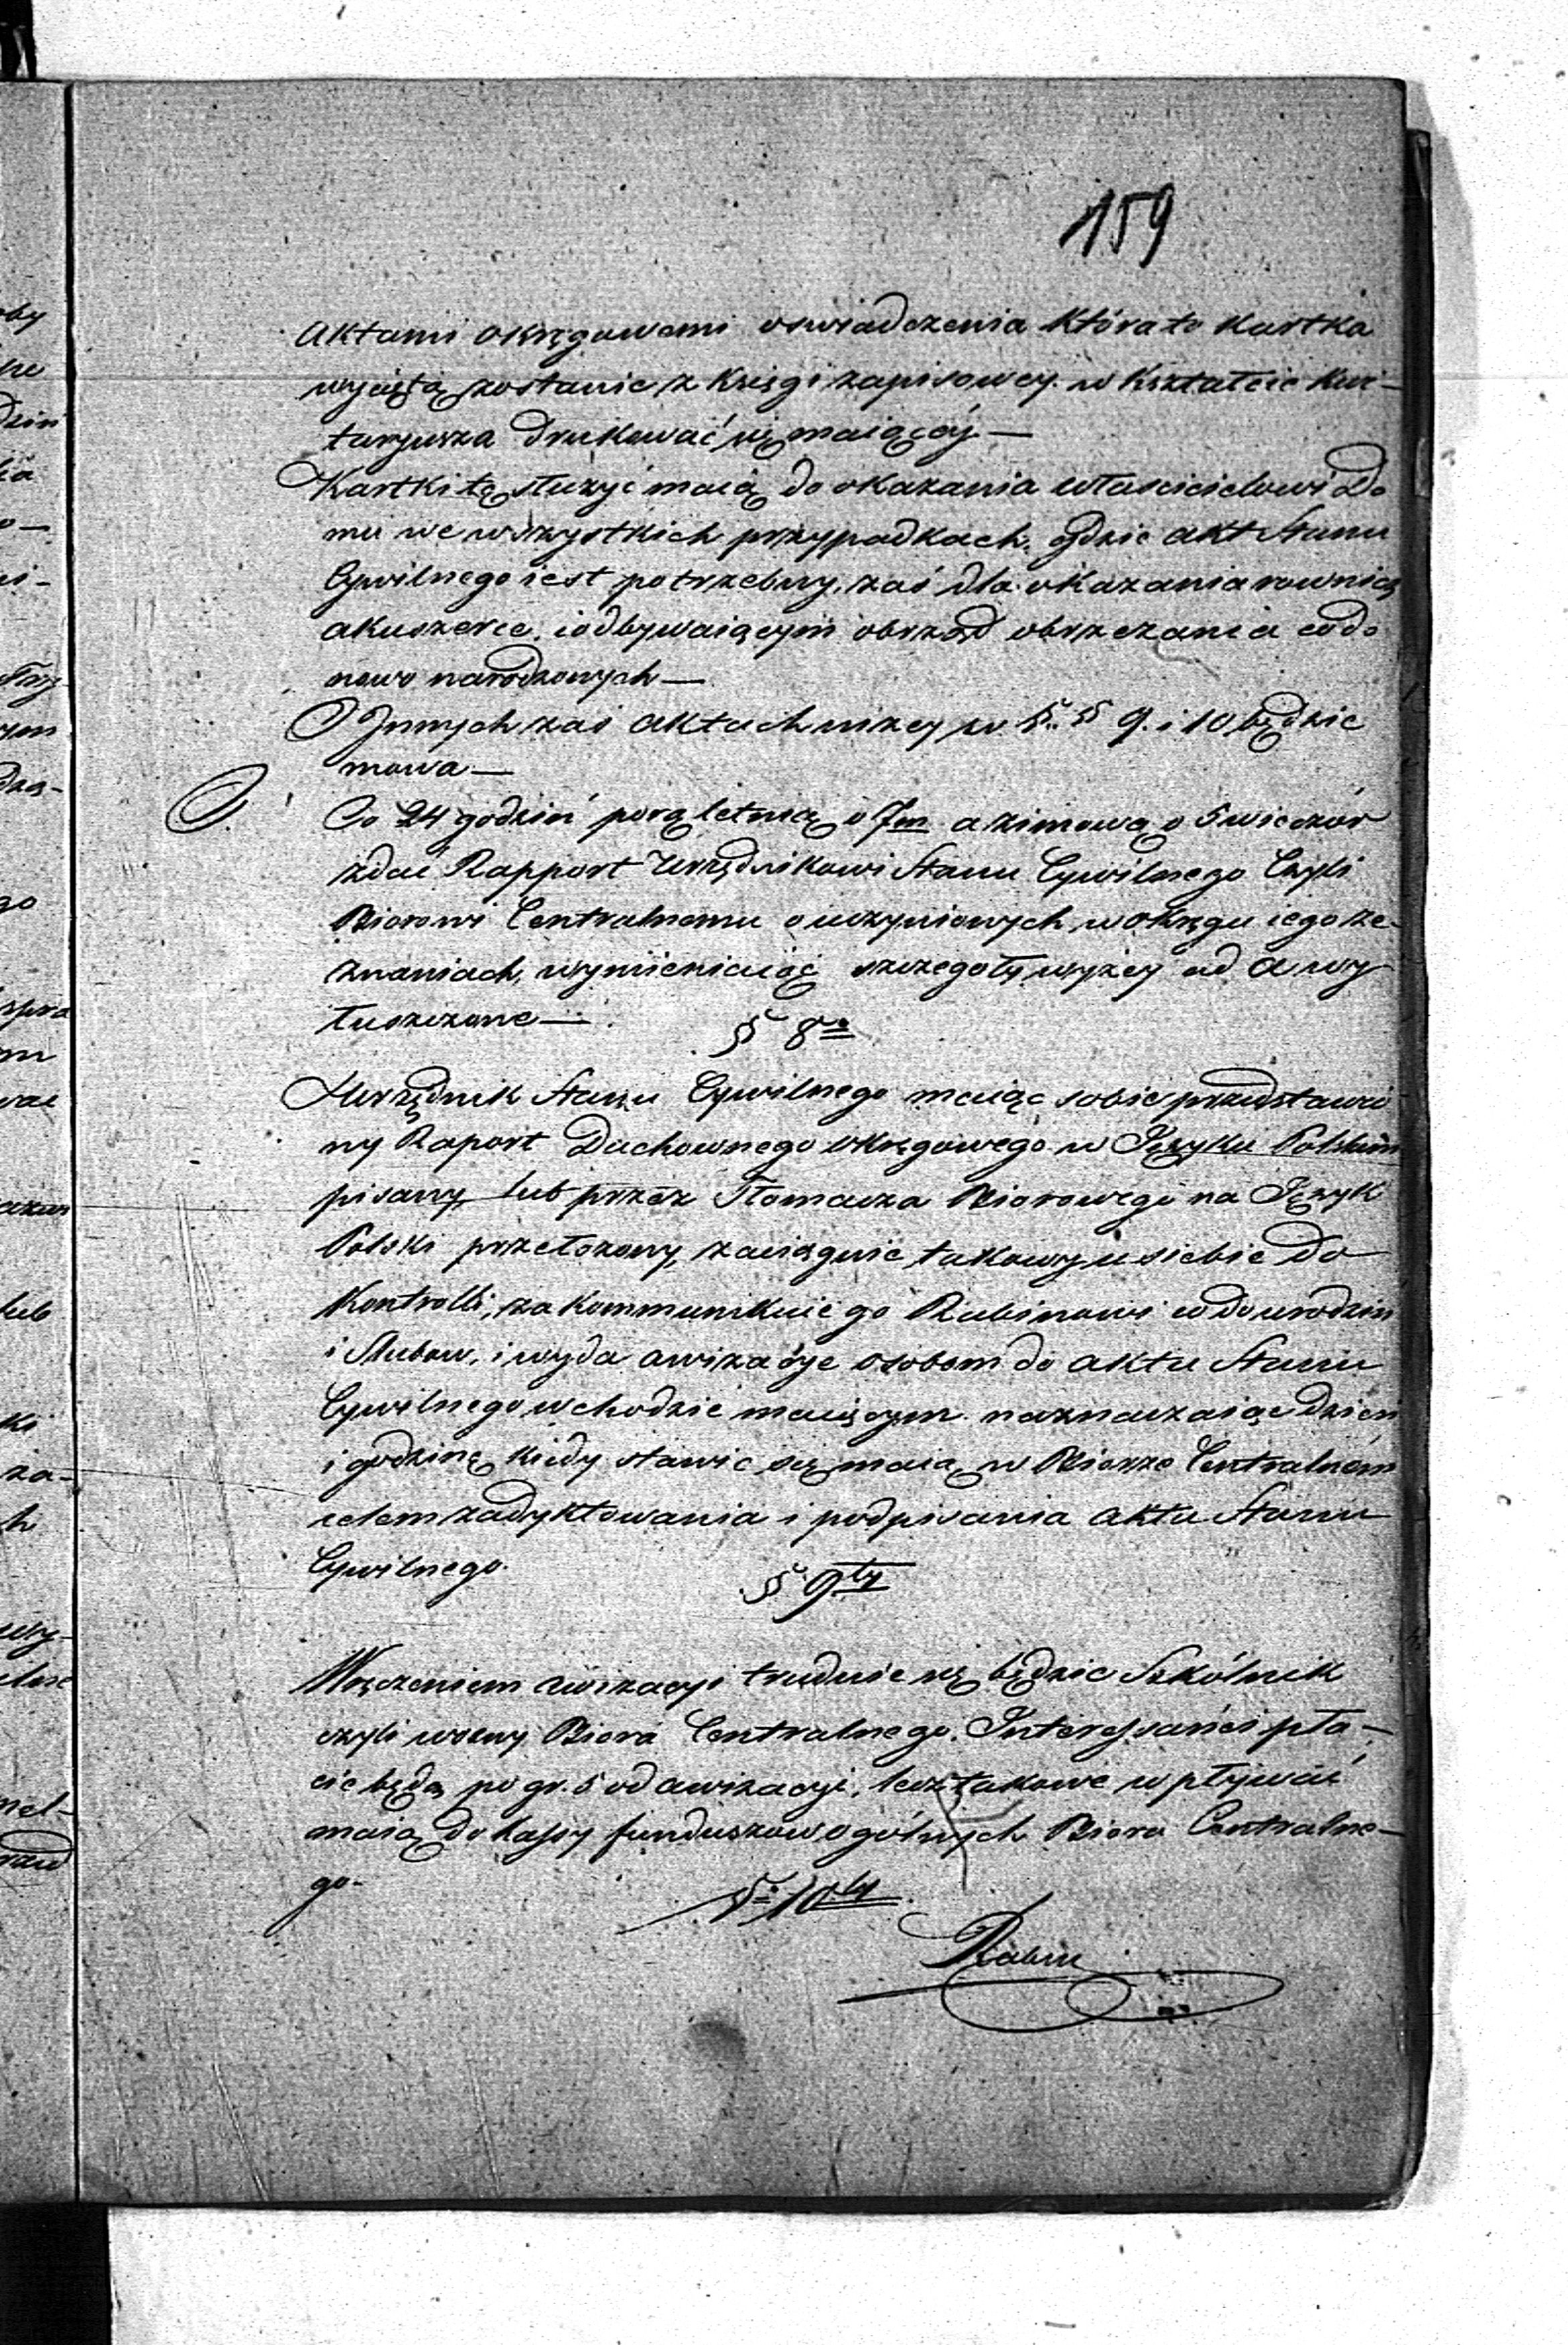 159
Aktami okręgowemi oswiadczenia która to kartka
wyciętą zostanie z Księgi zapisowey w kształcie kwi-
taryusza drukować się maiącéy —
Kartki tę służyć maią do okazania właścicielowi Do
mu we wszystkich przypadkach, gdzie akt Stanu
Cywilnego iest potrzebny, zaś dla okazania rownież
akuszerce, i odbywaiącym obrząd obrzezania co do
nowo narodzonych —
O Innych zaś aktach niżey w §. § 9. i 10 będzie
mowa —
Co 24 godzin porą letnią o 7m a zimową o 5 wieczór
zdać Rapport Urzędnikowi Stanu Cywilnego Czyli
Biorowi Centralnemu o uczynionych w okręgu iego ze-
znaniach, wymieniaiąc szczegoły wyżey ad a wy
łuszczone —
§ 8o
Urzędnik Stanu Cywilnego maiąc sobie przedstawio
ny Raport Duchownego okręgowego w Języku Polskim
pisany, lub przez Tłomacza Biorowego na Język
Polski przełożony, zaciągnie takowy u siebie do
Kontrolli, zakommunikuie go Rabinowi co do urodzin
i Slubow, i wyda awizacye osobom do aktu Stanu
Cywilnego wchodzić maiącym naznaczaiąc dzień
i godzinę kiedy stawić się maią w Biorze Centralném
celem zadyktowania i podpisania aktu Stanu
Cywilnego.
§ 9ty
Wręczeniem awizacyi trudnić się będzie Szkólnik
czyli wozny Biora Centralnego. Interessańci pła-
cić będą po gr. 5 od awizacyi, lecz takowe wpływać
maią do kassy funduszow ogólnych Biora Centralne-
go.
§ 10ty
Rabin